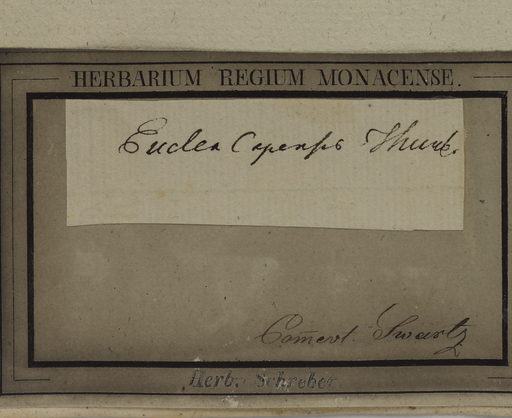 HERBARIUM REGIUM MONACENSE.
Euclea Capensis Thunb.
Com̄evt. Swartz
Herb. Schreber